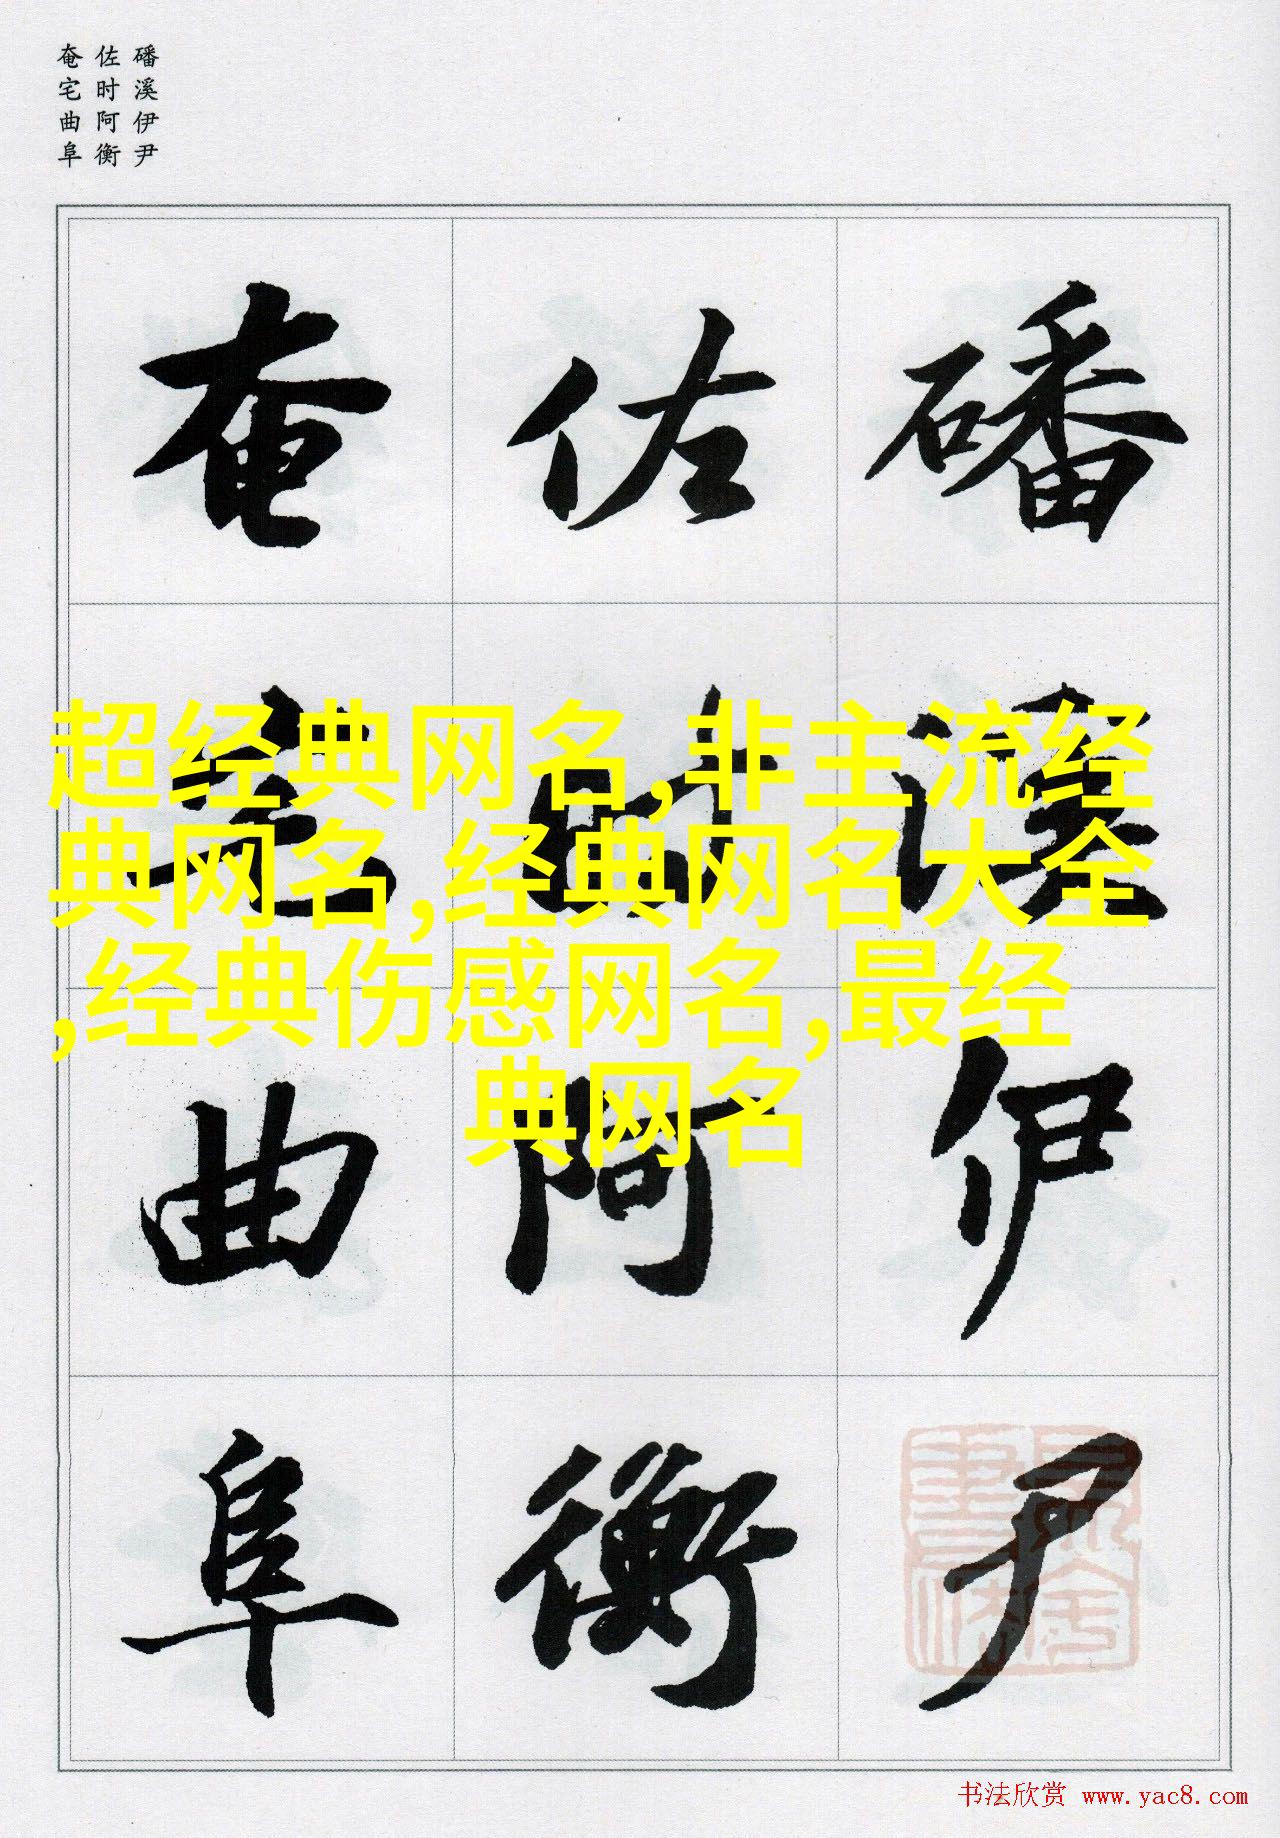 磻溪伊尹
佐时阿衡
奄宅曲阜
磻溪伊尹
佐时阿衡
奄宅曲阜
超经典网名,非主流经
典网名,经典网名大全
,经典伤感网名,最经
典网名
书法欣赏 www.yac8.com